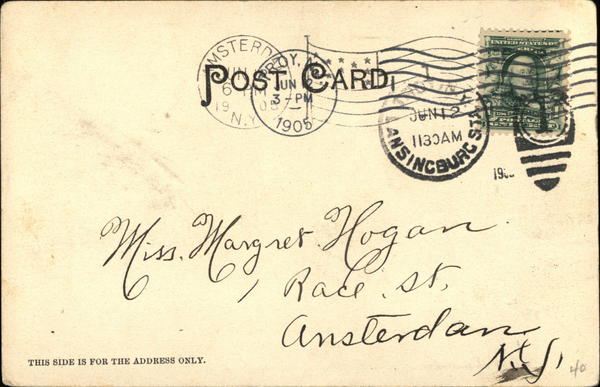 AMSTERDAM
JUN
6
1905
N.Y.
TROY,
JUN 2
3-PM
1905
POST CARD
UNITED STATES OF
JUN 12
1130AM
LANSINGBURG STA
Miss. Margret. Hogan.
1 Race. st.
Amsterdam
N.Y.
THIS SIDE IS FOR THE ADDRESS ONLY.
40